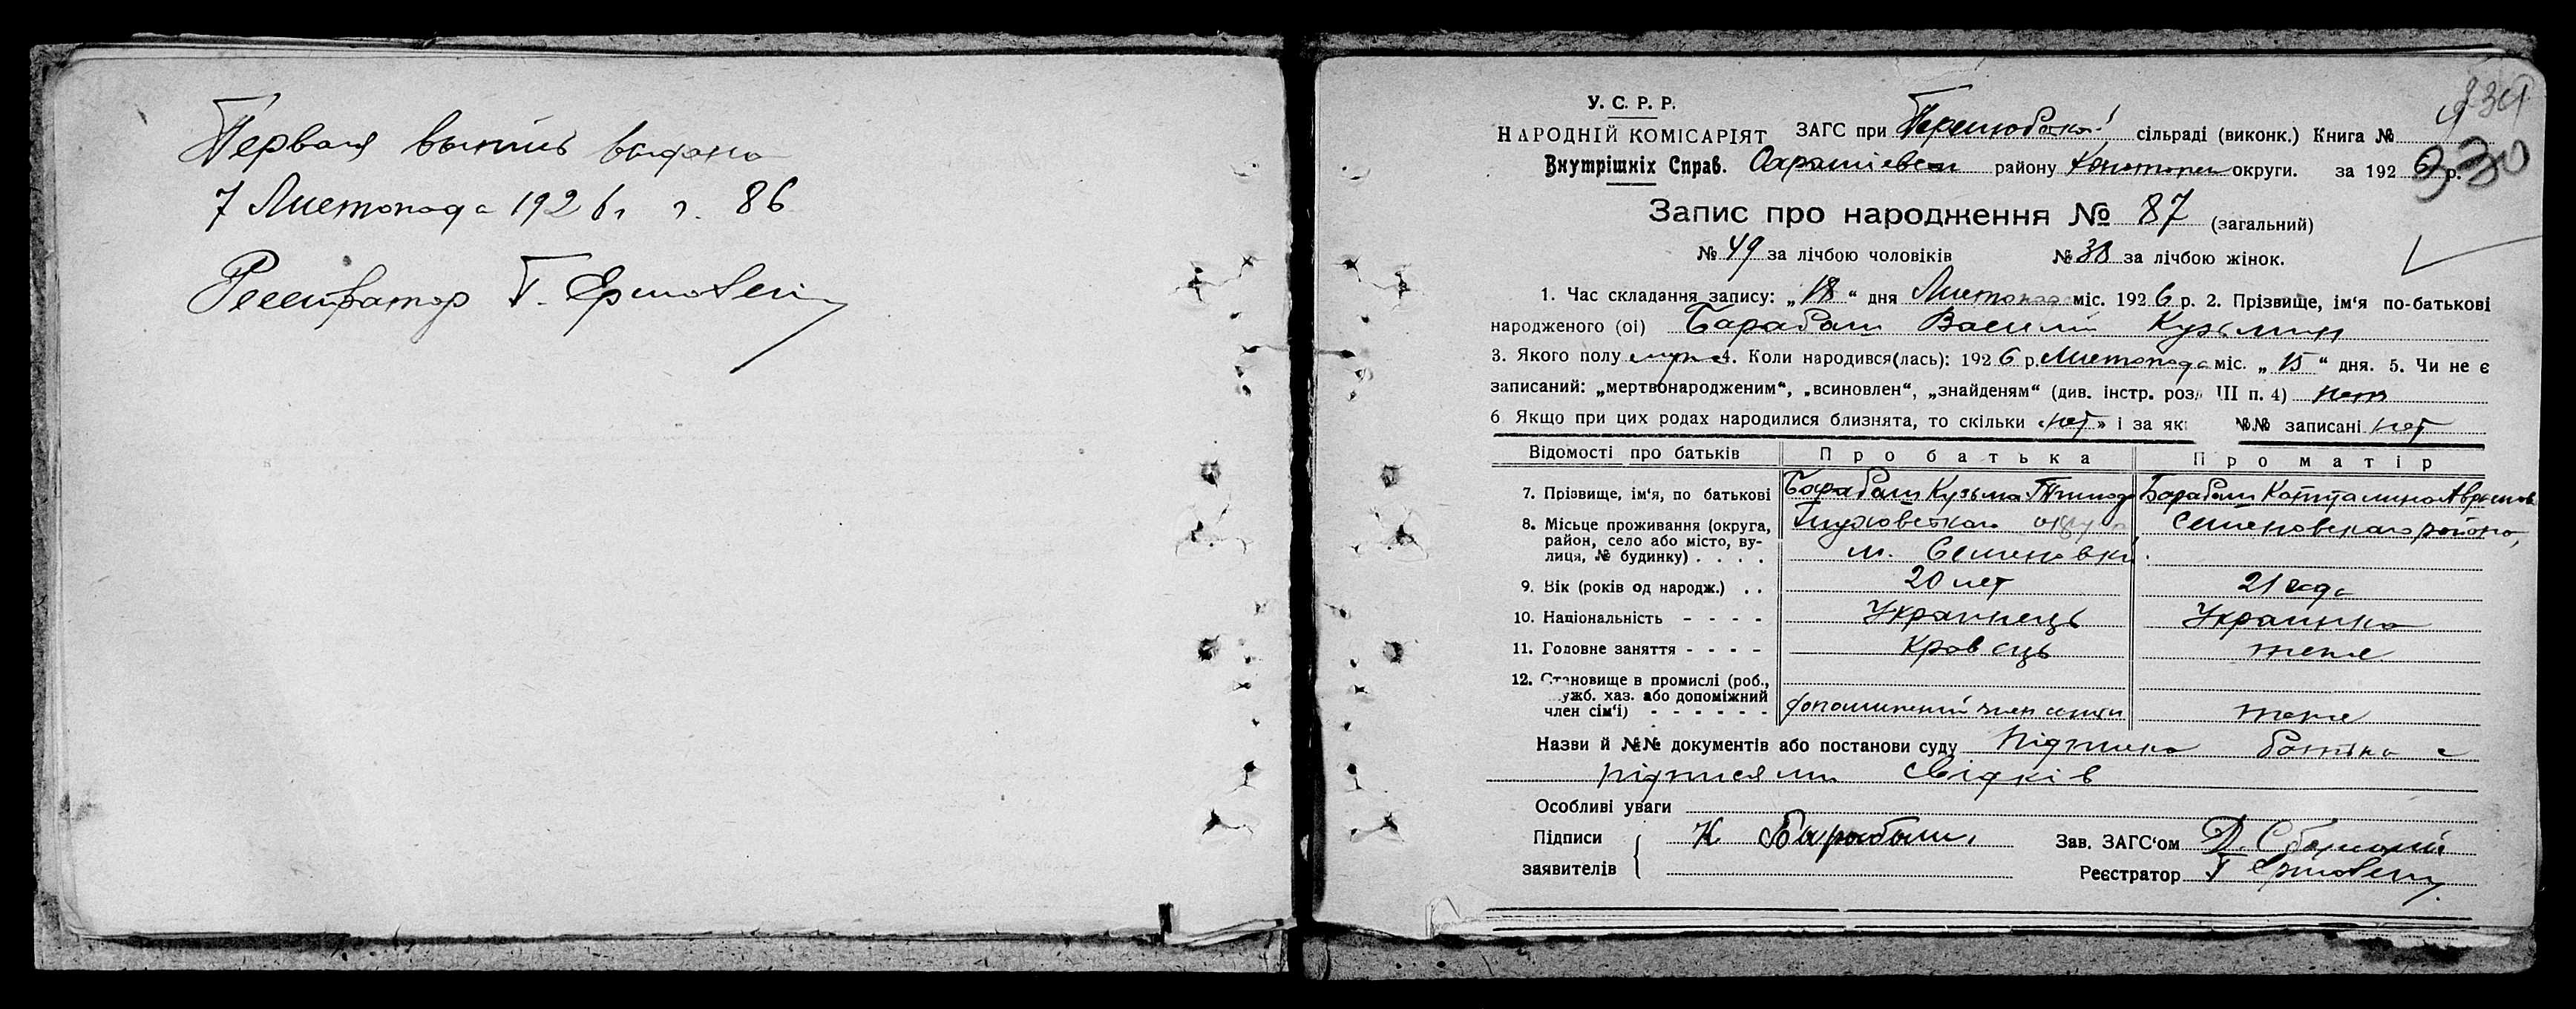 Первая выпись выдана
7 Листопада 1926 г. 86
Регистратор Т.
У. С. Р. Р.
НАРОДНІЙ КОМІСАРІЯТ
Внутрішніх Справ.
ЗАГС при сільраді (виконк.) Книга №
району Конотопск округи. за 1926 р.
330
Запис про народження № 87 (загальний)
№ 49 за лічбою чоловіків № 38 за лічбою жінок.
1. Час складання запису: „18“ дня Листопада міс. 1926 р. 2. Прізвище, ім‘я по-батькові
народженого (ої) Барабаш Василій Кузьмин
3. Якого полу муж 4. Коли народився(лась): 1926 р. Листопада міс. „15“ дня. 5. Чи не є
записаний: „мертвонародженим“, „всиновлен“, „знайденям“ (див. інстр. розд III п. 4) нет
6 Якщо при цих родах народилися близнята, то скільки «нет» і за які №№ записані нет
Відомості про батьків Про батька Про матір
7. Прізвище, ім‘я, по батькові Барабаш Кузьма Барабаш
8. Місьце проживання (округа, район, село або місто, вулиця, № будинку) . . . . округа Семеновскаго района,
м. Семеновки
9. Вік (років од народж.) . . 20 лет 21 года
10. Національність - - - - Украинець Украинка
11. Головне заняття - - - - Кравець тоже
12. Становище в промислі (роб., служб. хаз. або допоміжний член сім‘ї) - - - - - - член тоже
Назви й №№ документів або постанови суду Підписка батька с
підписями свідків
Особливі уваги
Підписи заявителів К Барабаш
Зав. ЗАГС‘ом Д.
Реєстратор Т